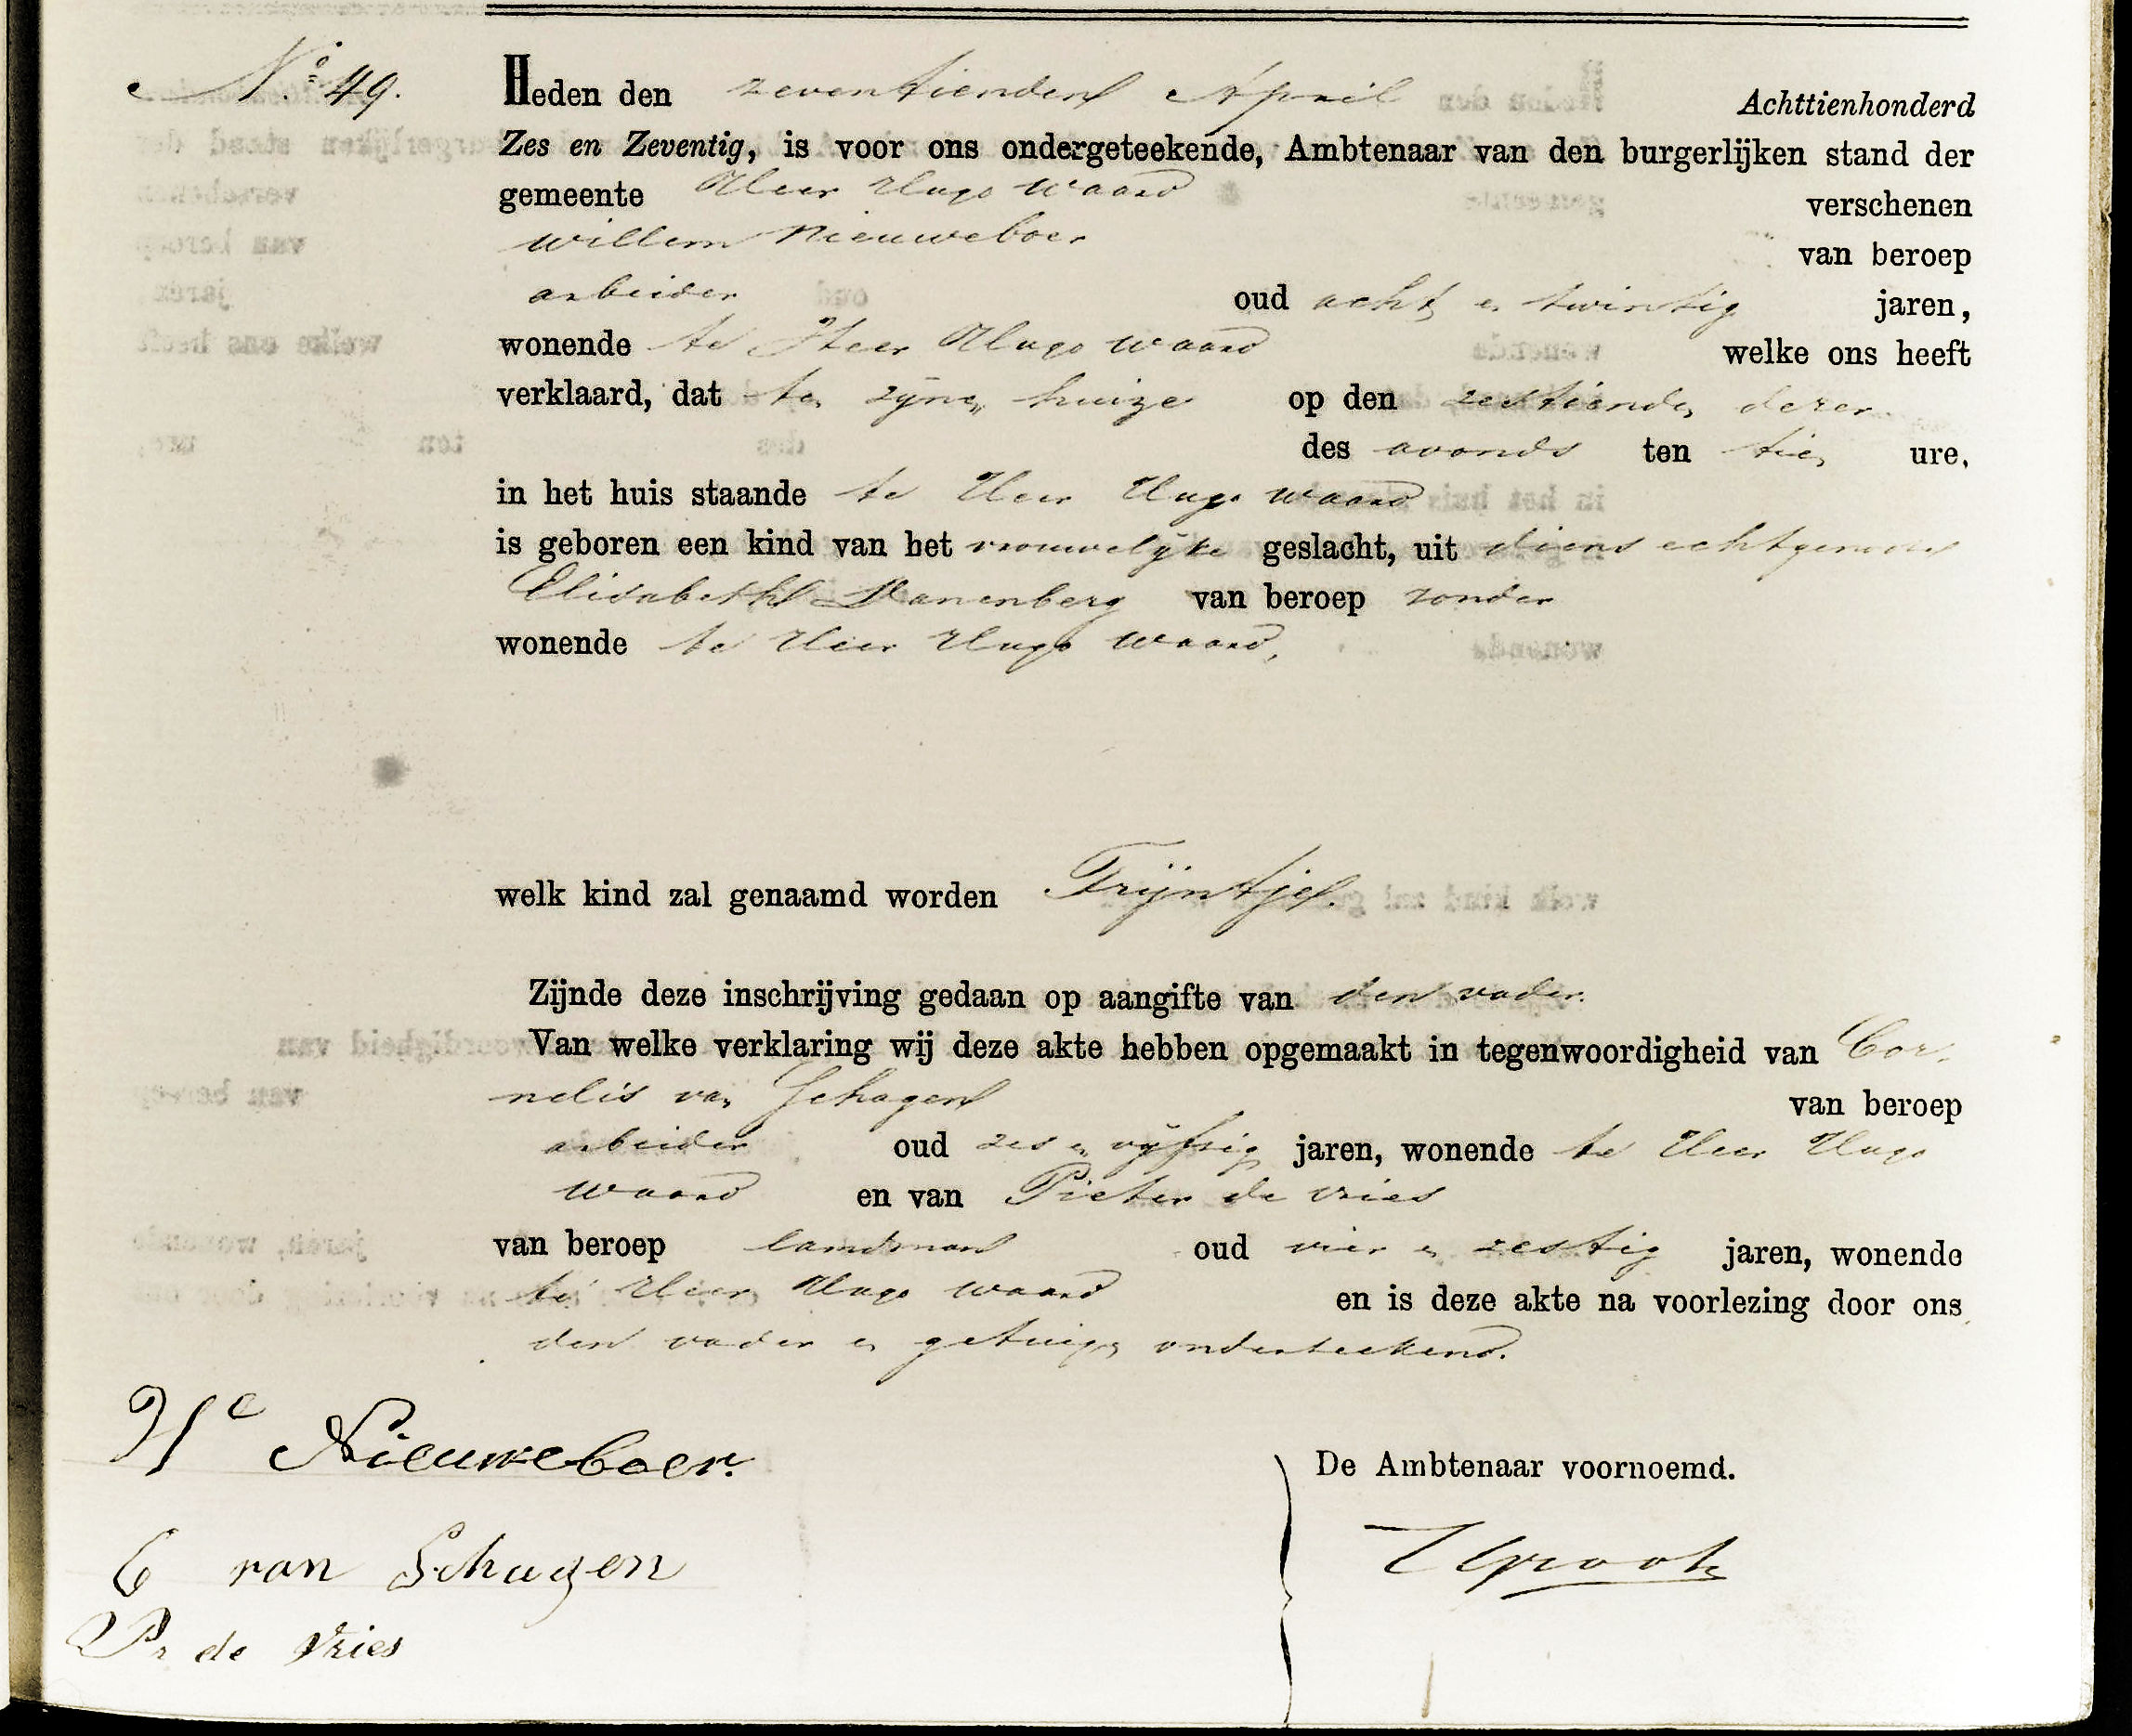 No. 49.
Heden den zeventienden April Achttienhonderd
Zes en Zeventig, is voor ons ondergeteekende, Ambtenaar van den burgerlijken stand der
gemeente Heer Hugo waard verschenen
willem Nieuweboer van beroep
arbeider oud acht en twintig jaren,
wonende te Heer Hugo waard welke ons heeft
verklaard, dat ten zijnen huize op den zestienden dezer
des avonds ten tien ure,
in het huis staande te Heer Hugo waard
is geboren een kind van het vrouwelijke geslacht, uit diens echtgenoote
Elisabeth Danenberg van beroep zonder
wonende te Heer Hugo waard,
welk kind zal genaamd worden Trijntje.
Zijnde deze inschrijving gedaan op aangifte van den vader.
Van welke verklaring wij deze akte hebben opgemaakt in tegenwoordigheid van Cor-
nelis van Schagen van beroep
arbeider oud zes en vijftig jaren, wonende te Heer Hugo
waard en van Pieter de Vries
van beroep landman oud vier en zestig jaren, wonende
te Heer Hugo waard en is deze akte na voorlezing door ons
den vader en getuigen onderteekend.
Nieuweboer.
De Ambtenaar voornoemd.
C van Schagen
Pr de Vries